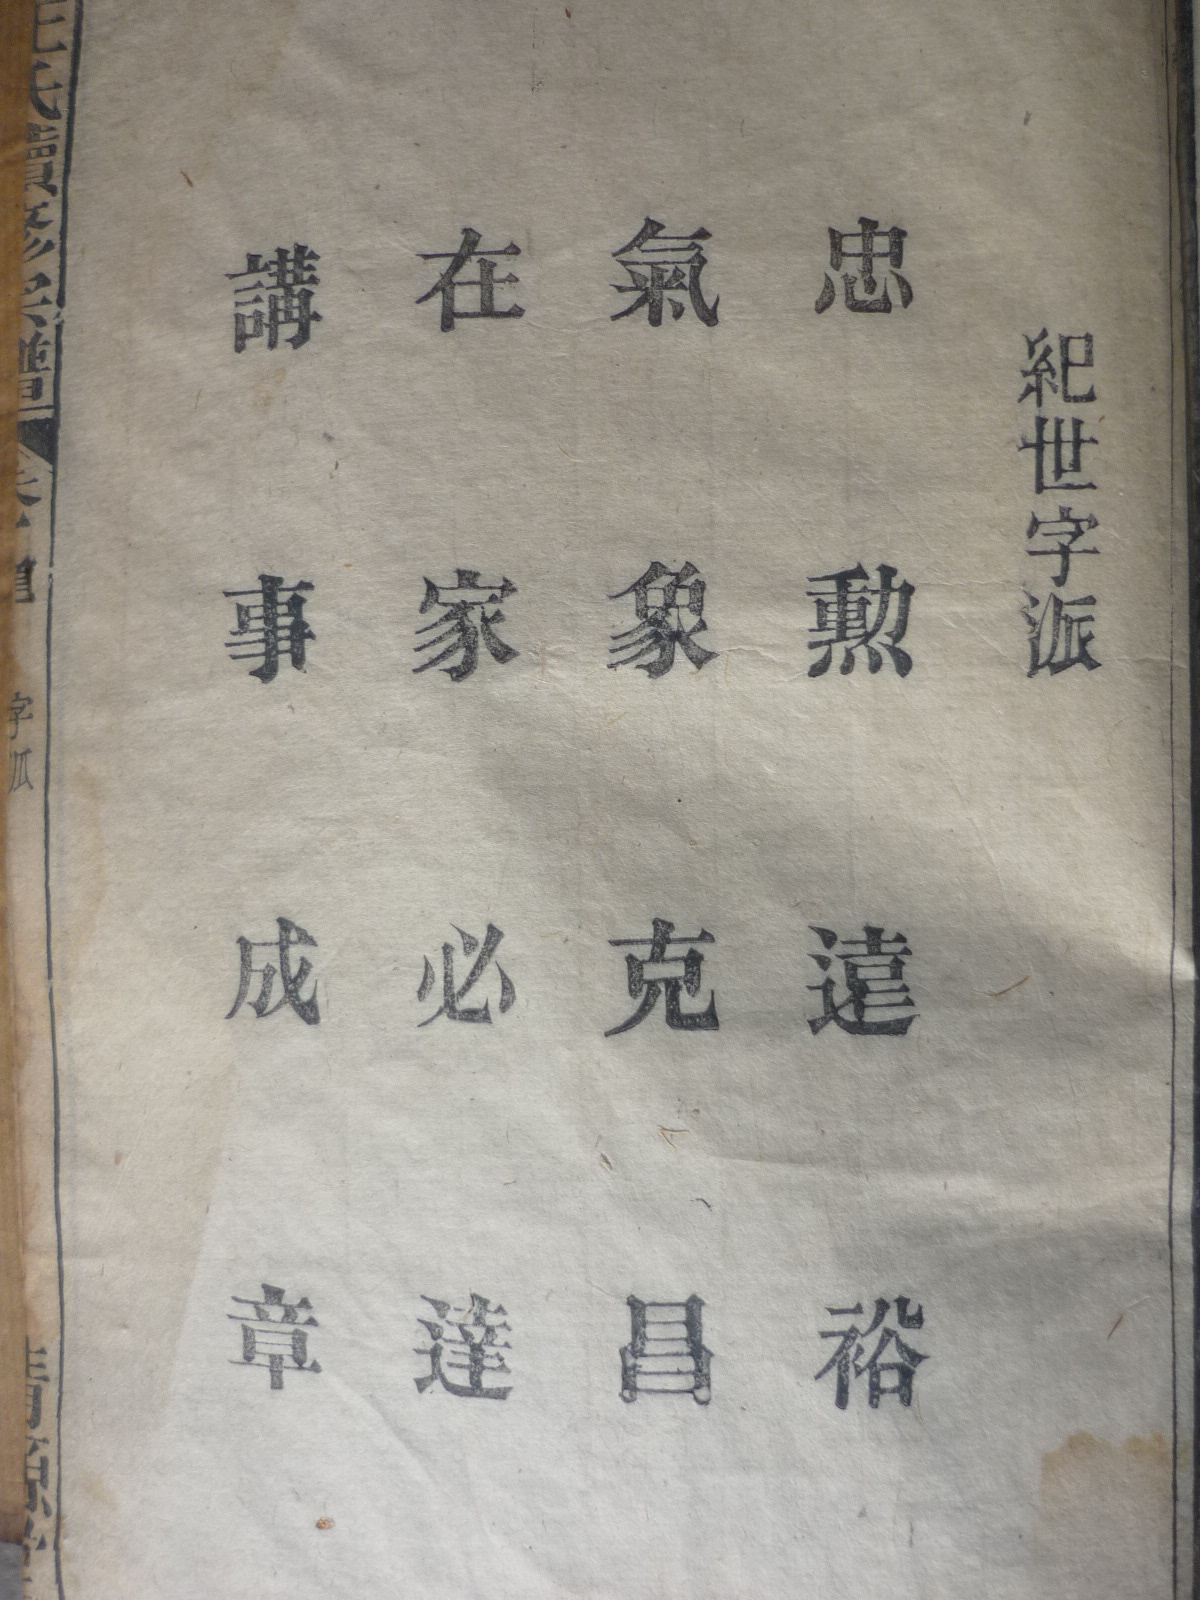 紀世字派
忠勲遠裕
氣象克昌
在家必達
講事成章
氏續修宗譜
字派